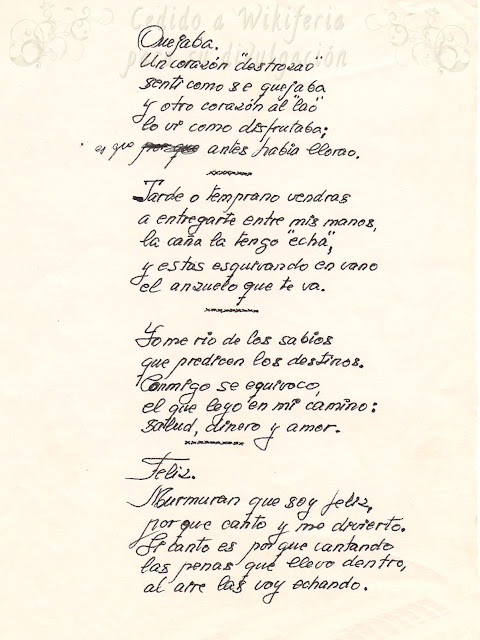 Cedido a Wikiferia
para su divulgación
Quejaba.
Un corazón "destrozao"
senti como se quejaba
y otro corazón al "lao"
lo vi como disfrutaba;
es que por que antes habia llorao.
Tarde o temprano vendras
a entregarte entre mis manos,
la caña la tengo "echá",
y estas esquivando en vano
el anzuelo que te va.
Yo me rio de los sabios
que predicen los destinos.
Conmigo se equivoco,
el que leyo en mi camino:
salud, dinero y amor.
Feliz.
Murmuran que soy feliz,
porque canto y me divierto.
Si canto es porque cantando
las penas que llevo dentro,
al aire las voy echando.